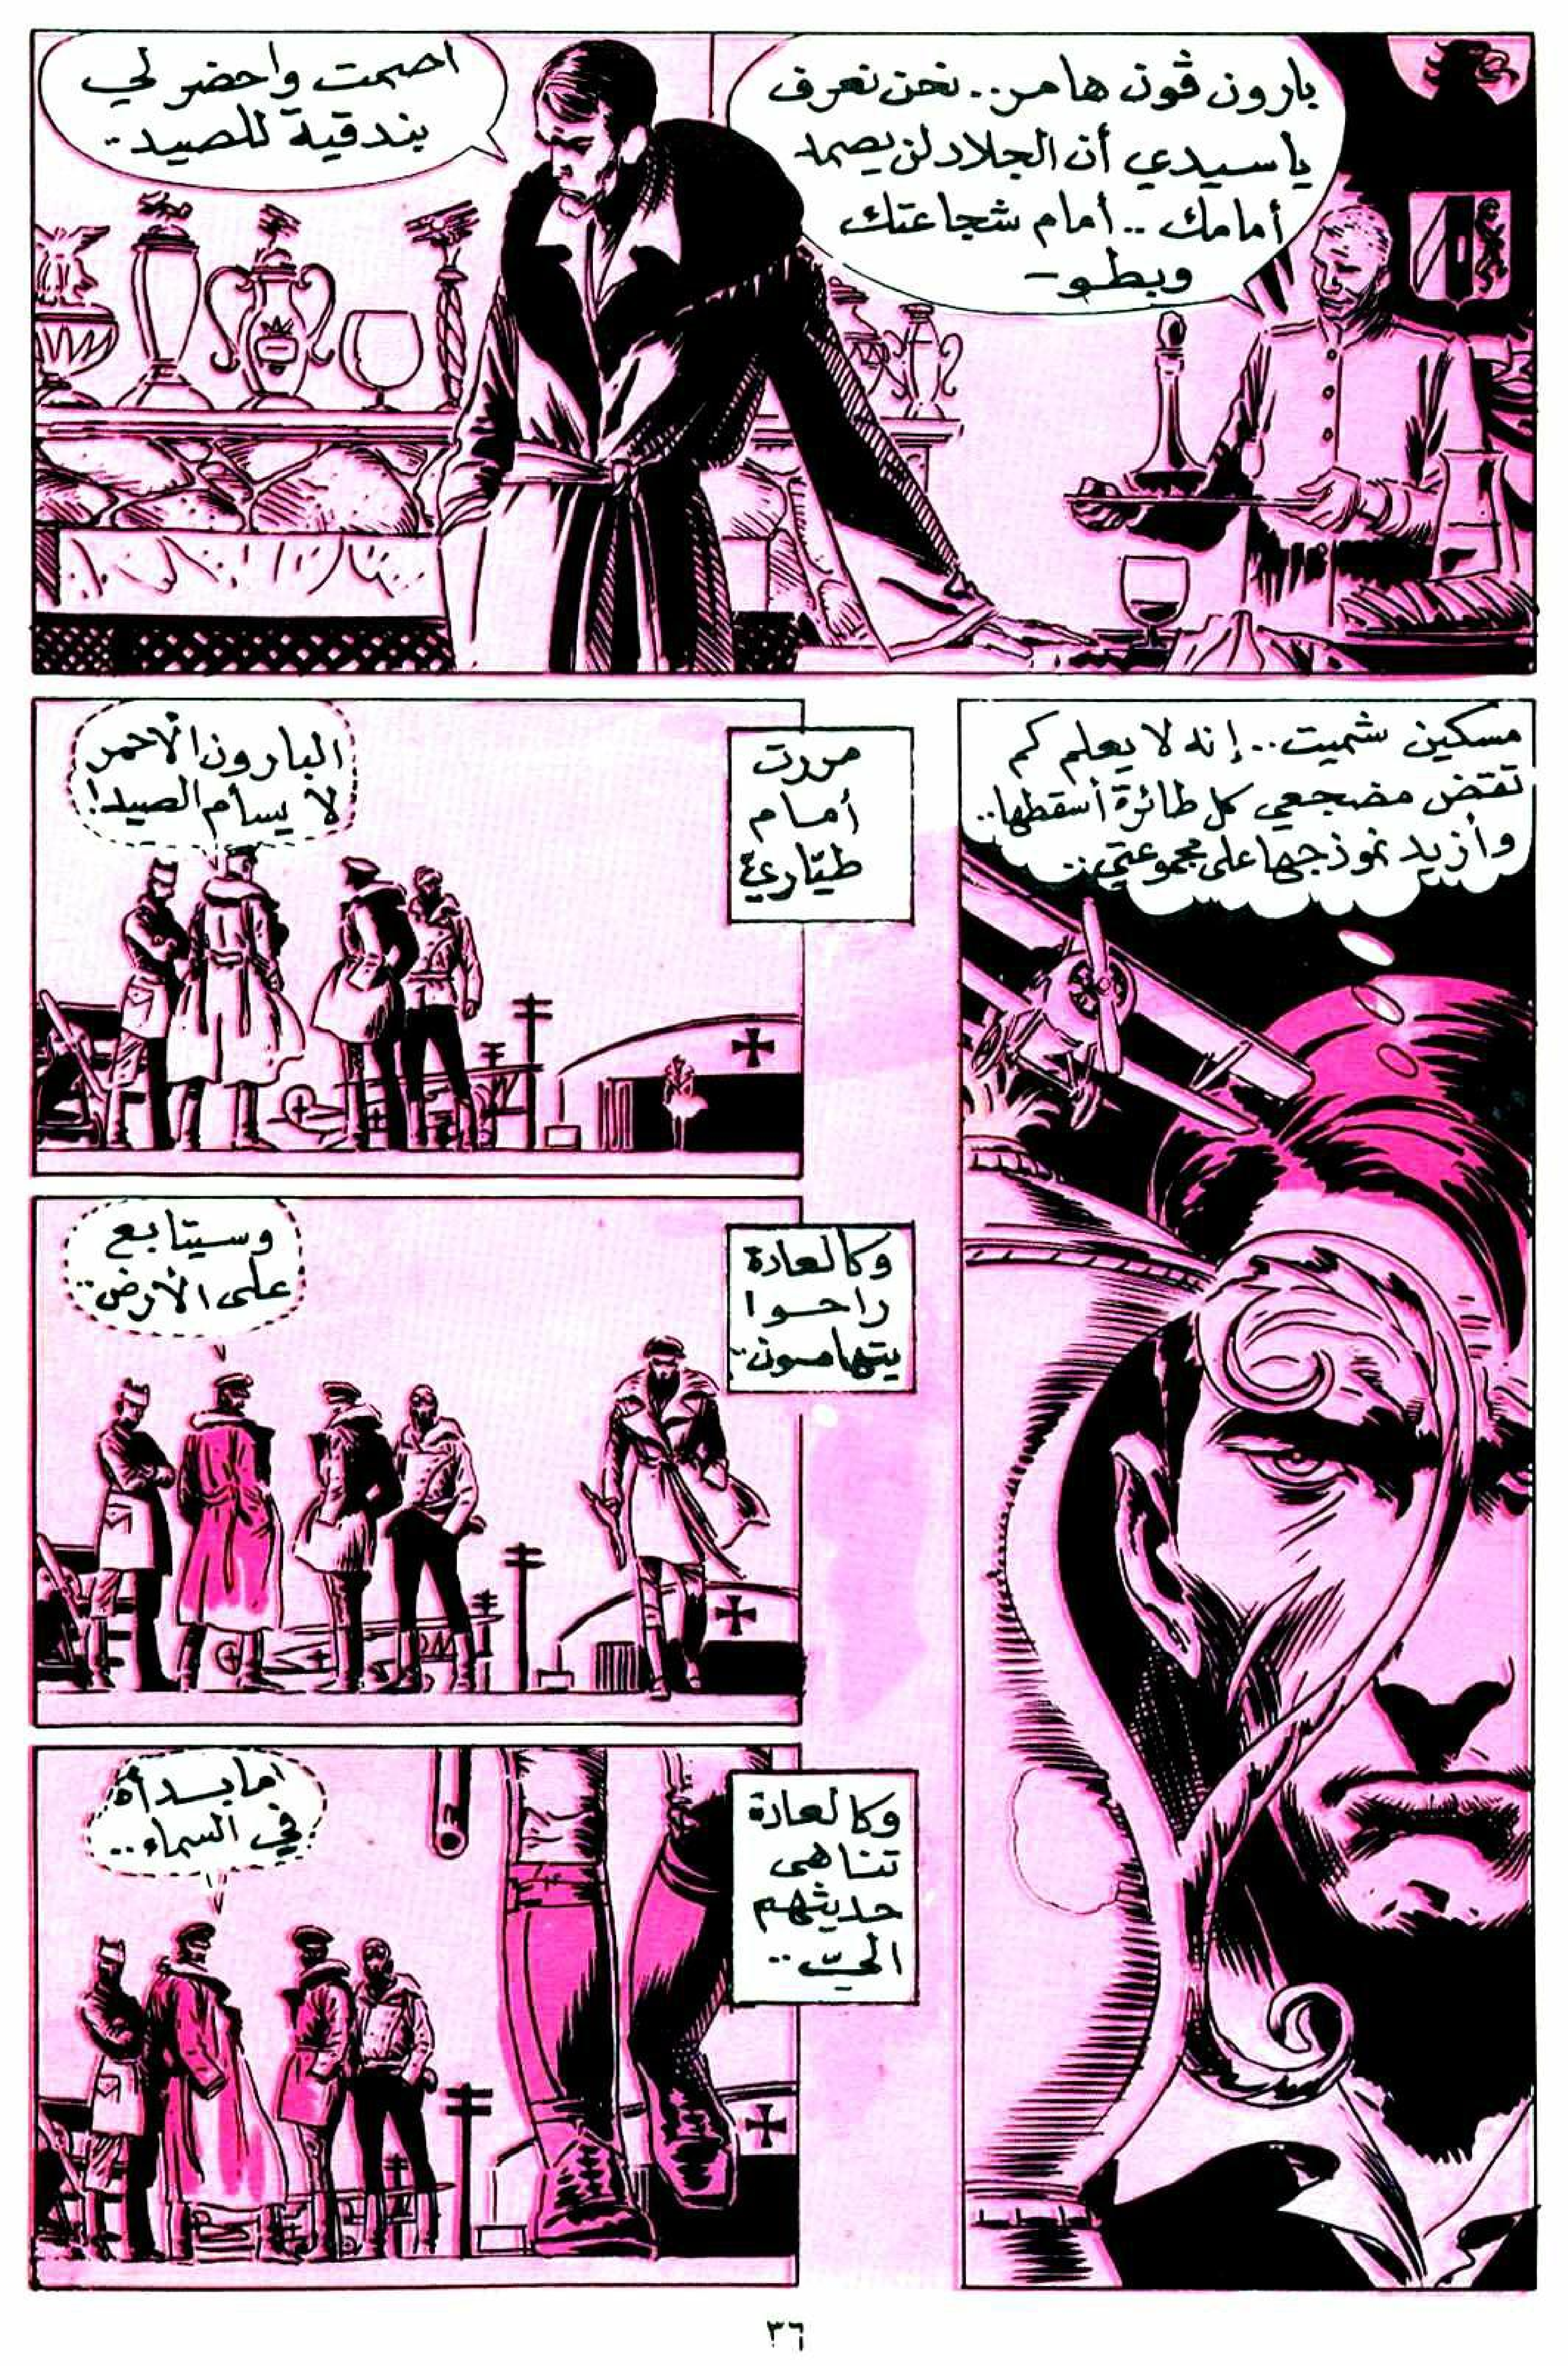 بارون ڤون هامر.. نحن نعرف
ياسيدي أن الجلاد لن يصمد
أمامك .. أمام شجاعتك
وبطو -
اصمت واحضر لي
بندقية للصيد..
مسكين شميت.. إنه لا يعلم كم
تقض مضجعي كل طائرة أسقطها..
وأزيد نموذجها على مجموعتي..
مررت
أمام
طيّاريّ
البارون الأحمر
لا يسأم الصيد!
وكالعادة
راحوا
يتهامسون..
وسيتابع
على الأرض..
وكالعادة
تناهى
حديثهم
اليّ..
ما بدأه
في السماء..
٣٦